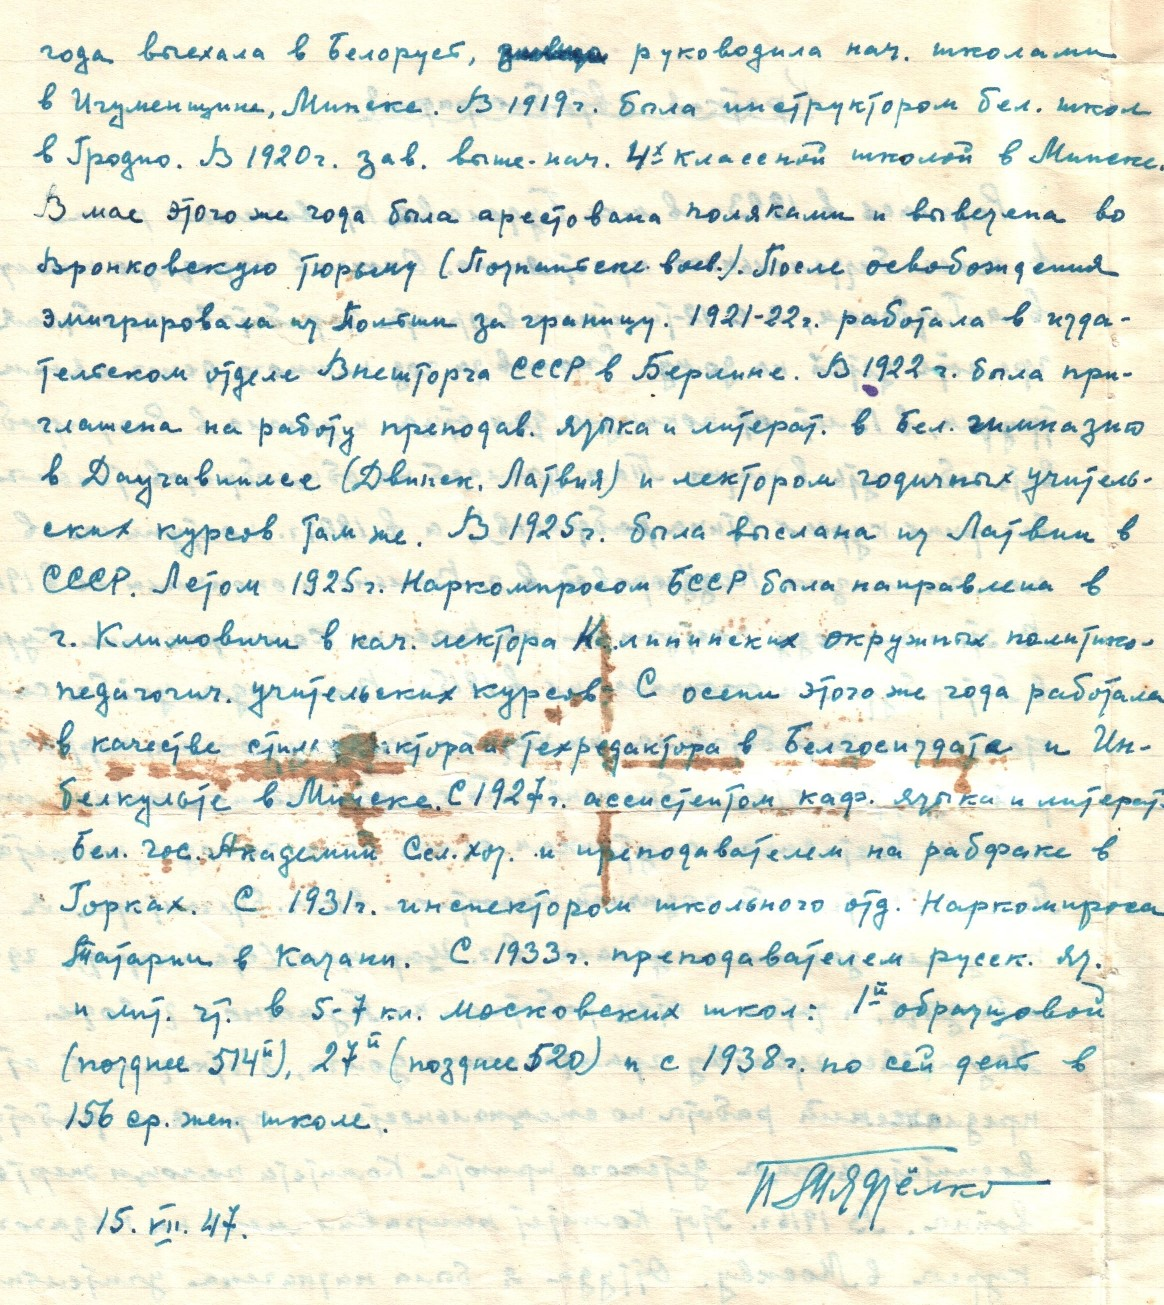 года выехала в Белорусь, руководила нач. школами
в Игуменщине, Минске. В 1919 г. была инструктором бел. школ
в Гродно. В 1920 г. зав. высше-нач. 4х классной школой в Минске.
В мае этого же года была арестована поляками и вывезена во
Вронковскую тюрьму (Познаньск. воев.). После освобождения
эмигрировала из Польши за границу. 1921-22 г. работала в изда-
тельском отделе Внешторга СССР в Берлине. В 1922 г. была при-
глашена на работу преподав. языка и литерат. в бел. гимназию
в Даугавпилсе (Двинск, Латвия) и лектором годичных учитель-
ских курсов там же. В 1925 г. была выслана из Латвии в
СССР. Летом 1925 г. Наркомпросом БССР была направлена в
г. Климовичи в кач. лектора Калининских окружных политико-
педагогич. учительских курсов. С осени этого же года работала
в качестве и техредактора в Белгосиздате и Ин-
белкульте в Минске. С 1927 г. ассистентом каф. языка и литерат.
Бел. гос. Академии Сел. хоз. и преподавателем на рабфаке в
Горках. С 1931 г. инспектором школьного отд. Наркомпроса
Татарии в Казани. С 1933 г. преподавателем русск. яз.
и лит. чт. в 5-7 кл. московских школ: 1й образцовой
(позднее 514й), 27й (позднее 520) и с 1938 г. по сей день в
156 ср. жен. школе.
15. VII. 47.